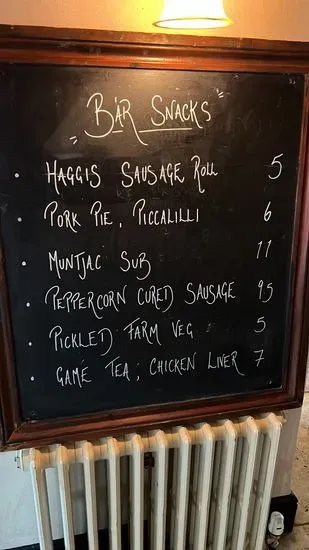 "BAR SNACKS"
• HAGGIS SAUSAGE ROLL 5
• PORK PIE, PICCALILLI 6
• MUNTJAC SUB 11
• PEPPERCORN CURED SAUSAGE 95
• PICKLED FARM VEG 5
• GAME TEA, CHICKEN LIVER 7